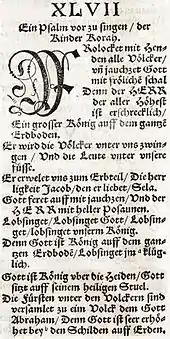 XLVII
Ein Psalm vor zu singen / der
Kinder Korah.
FRolocket mit Hen-
den alle Völcker /
vñ jauchzet Gott
mit frölichē schal
Denn der HERR
der aller Höhest
ist erschrecklich /
Ein grosser König auff dem gantzē
Erdboden.
Er wird die Völcker vnter vns zwin-
gen / Vnd die Leute vnter vnsere
füsse.
Er erwelet vns zum Erbteil / Die her-
ligkeit Jacob / den er liebet / Sela.
Gott feret auff mit jauchzen / Vnd der
HERR mit heller Posaunen.
Lobsinget / Lobsinget Gott / Lobsin-
get / lobsinget vnserm König.
Denn Gott ist König auff dem gan-
tzen Erdbodē / Lobsinget jm klüg-
lich.
Gott ist König vber die Heiden / Gott
sitzt auff seinem heiligen Stuel.
Die Fürsten vnter den Völckern sind
versamlet zu ein Volck dem Gott
Abraham / Denn Gott ist seer erhö-
het bey den Schilden auff Erden.